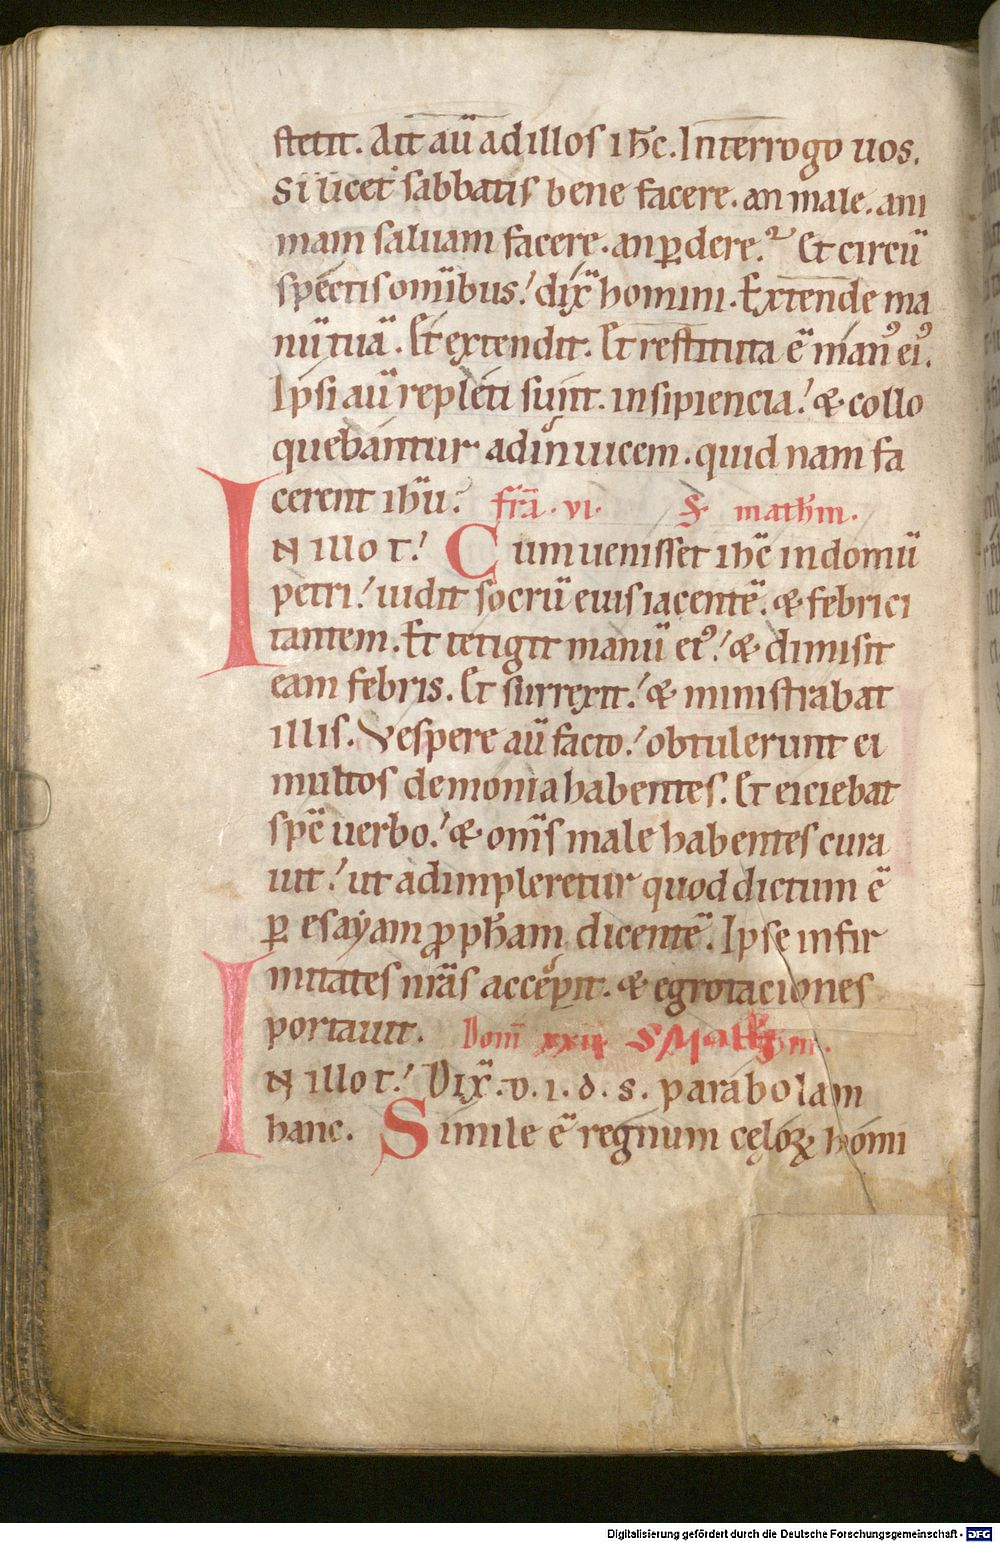 stetit. Ait aū ad illos ihc̄. Interrogo uos.
Si licet sabbatis bene facere. an male. ani
mam saluam facere. an ꝑdere. Et circū
spectis om̄ibus. dix̄ homini. Extende ma
nū tuā. Et extendit. Et restituta ē manꝰ eiꝰ.
Ipsi aū repleti sunt. insipiencia. & collo
quebantur adinuicem. quid nam fa
cerent ihū? fr̄a. vi. S. mathm̄.
IN illo t̄. Cum uenisset ihc̄ in domū
petri. uidit socrū eius iacentē. & febrici
tantem. Et tetigit manū eiꝰ. & dimisit
eam febris. Et surrexit. & ministrabat
illis. Vespere aū facto. obtulerunt ei
multos demonia habentes. Et eiciebat
spc̄ uerbo. & om̄s male habentes cura
uit. ut adimpleretur quod dictum ē
ꝑ esayam ꝓph̄am dicentē. Ipse infir
mitates nr̄as accepit. & egrotaciones
portauit. Dom̄ xxii S Math̄m.
IN illo t̄. Dix̄. D. i. d. s. parabolam
hanc. Simile ē regnum cęloꝝ homi
Digitalisierung gefördert durch die Deutsche Forschungsgemeinschaft - DFG